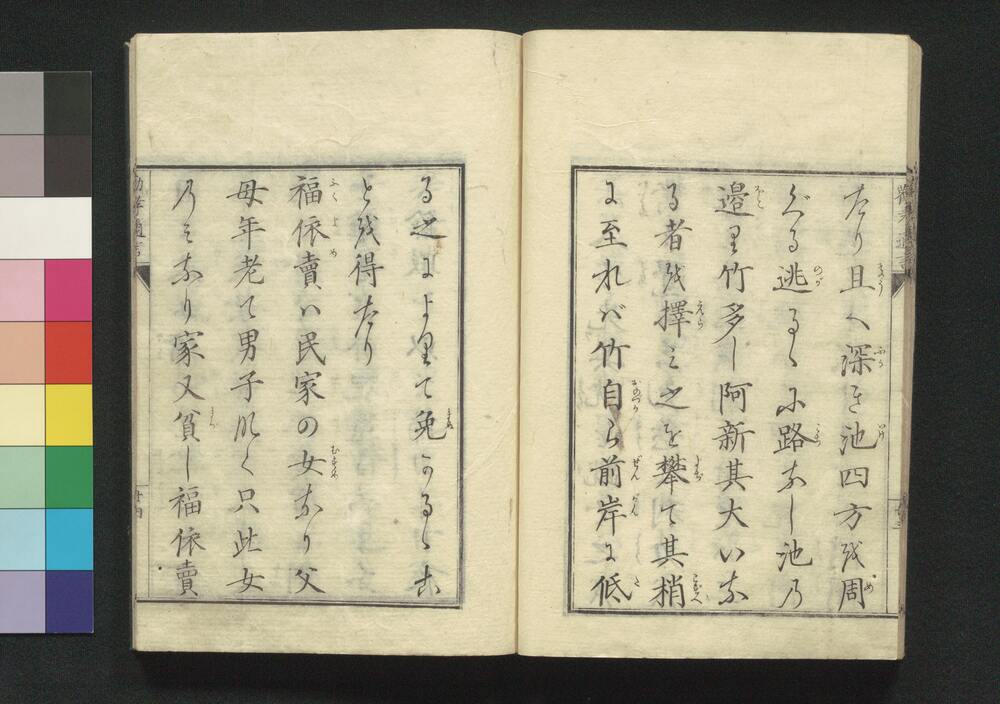 たり且へ深き池四方を周
ぐる逃るゝに路なし池の
邉に竹多し阿新其大いな
る者を擇み之を攀て其梢
に至れバ竹自ら前岸に低
る之によりて免かるゝこ
とを得たり
福依賣ハ民家の女なり父
母年老て男子なく只此女
のみなり家又貧し福依賣